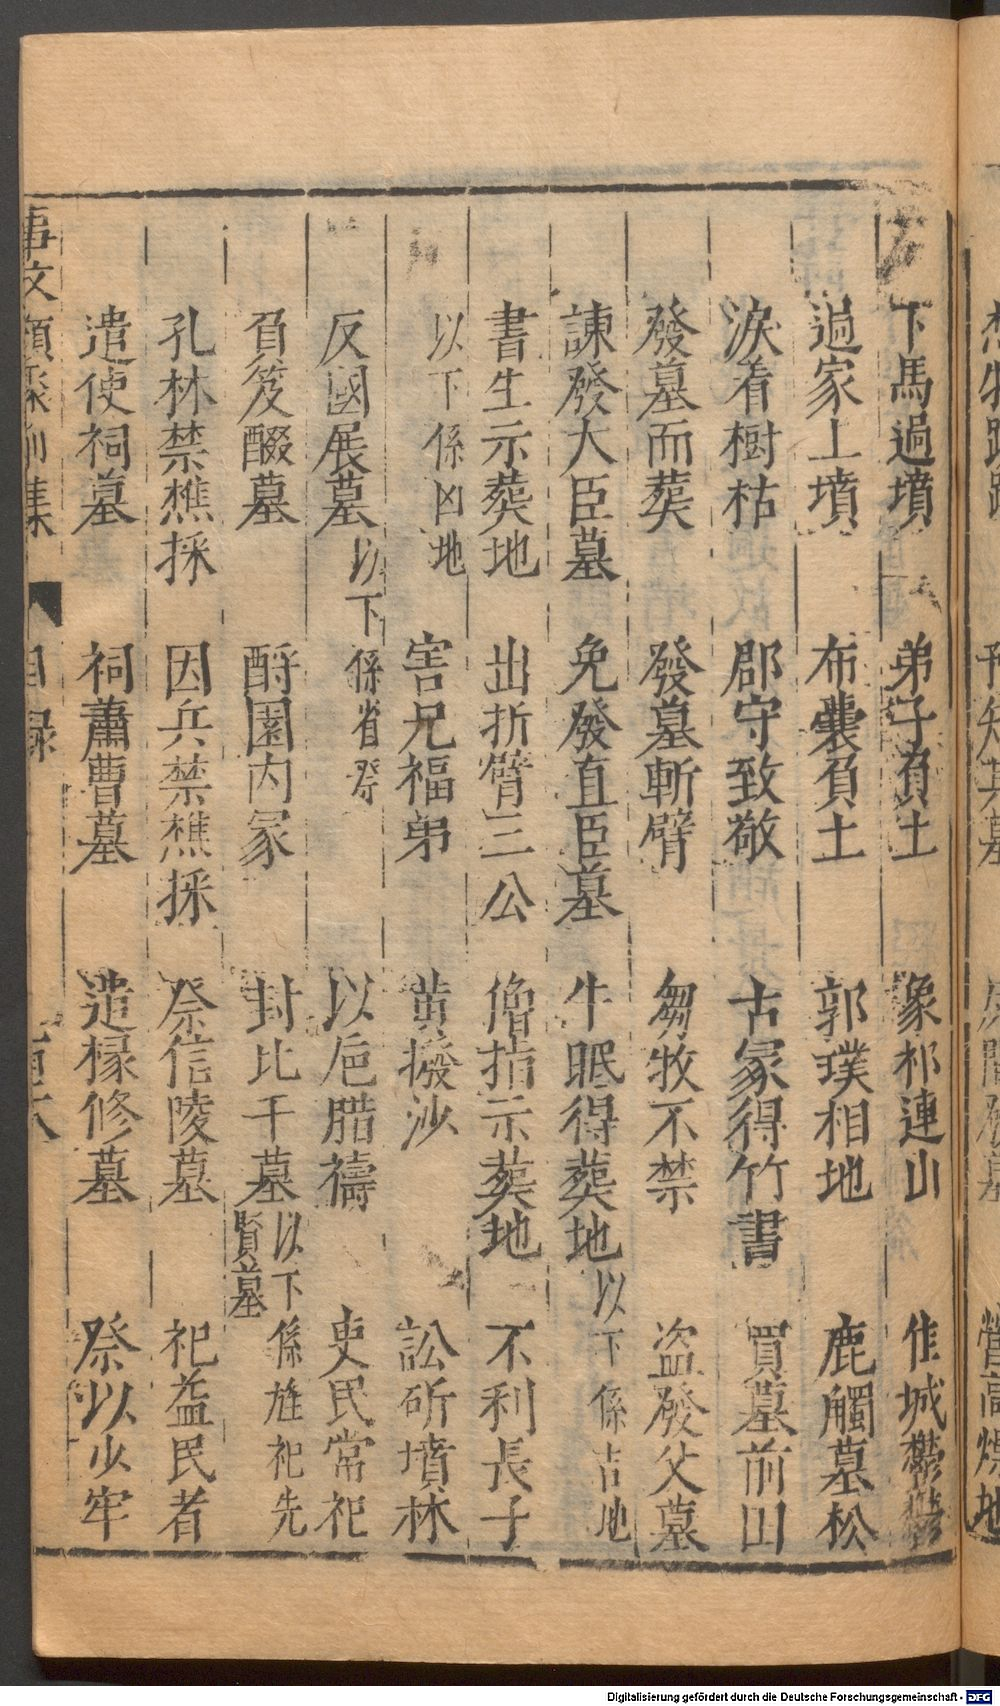 下馬過墳 弟子負土 象祁連山 佳城鬱鬱
過家上墳 布囊負土 郭璞相地 鹿觸墓松
淚着樹枯 郡守致敬 古冢得竹書 買墓前田
發墓而葬 發墓斬臂 芻牧不禁 盜發父墓
諫發大臣墓 免發直臣墓 牛眠得葬地 以下係吉地
書生示葬地 出折臂三公 僧指示葬地 不利長子
以下係凶地 害兄福弟 黃撥沙 訟斫墳林
反國展墓 以下係省祭 以巵腊禱 吏民常祀
負笈醊墓 酹園内冢 封比干墓 以下係旌祀先賢墓
孔林禁樵採 因兵禁樵採 祭信陵墓 祀益民者
遣使祠墓 祠蕭曹墓 遣椽修墓 祭以少牢
事文類聚前集 目錄
Digitalisierung gefördert durch die Deutsche Forschungsgemeinschaft - DFG